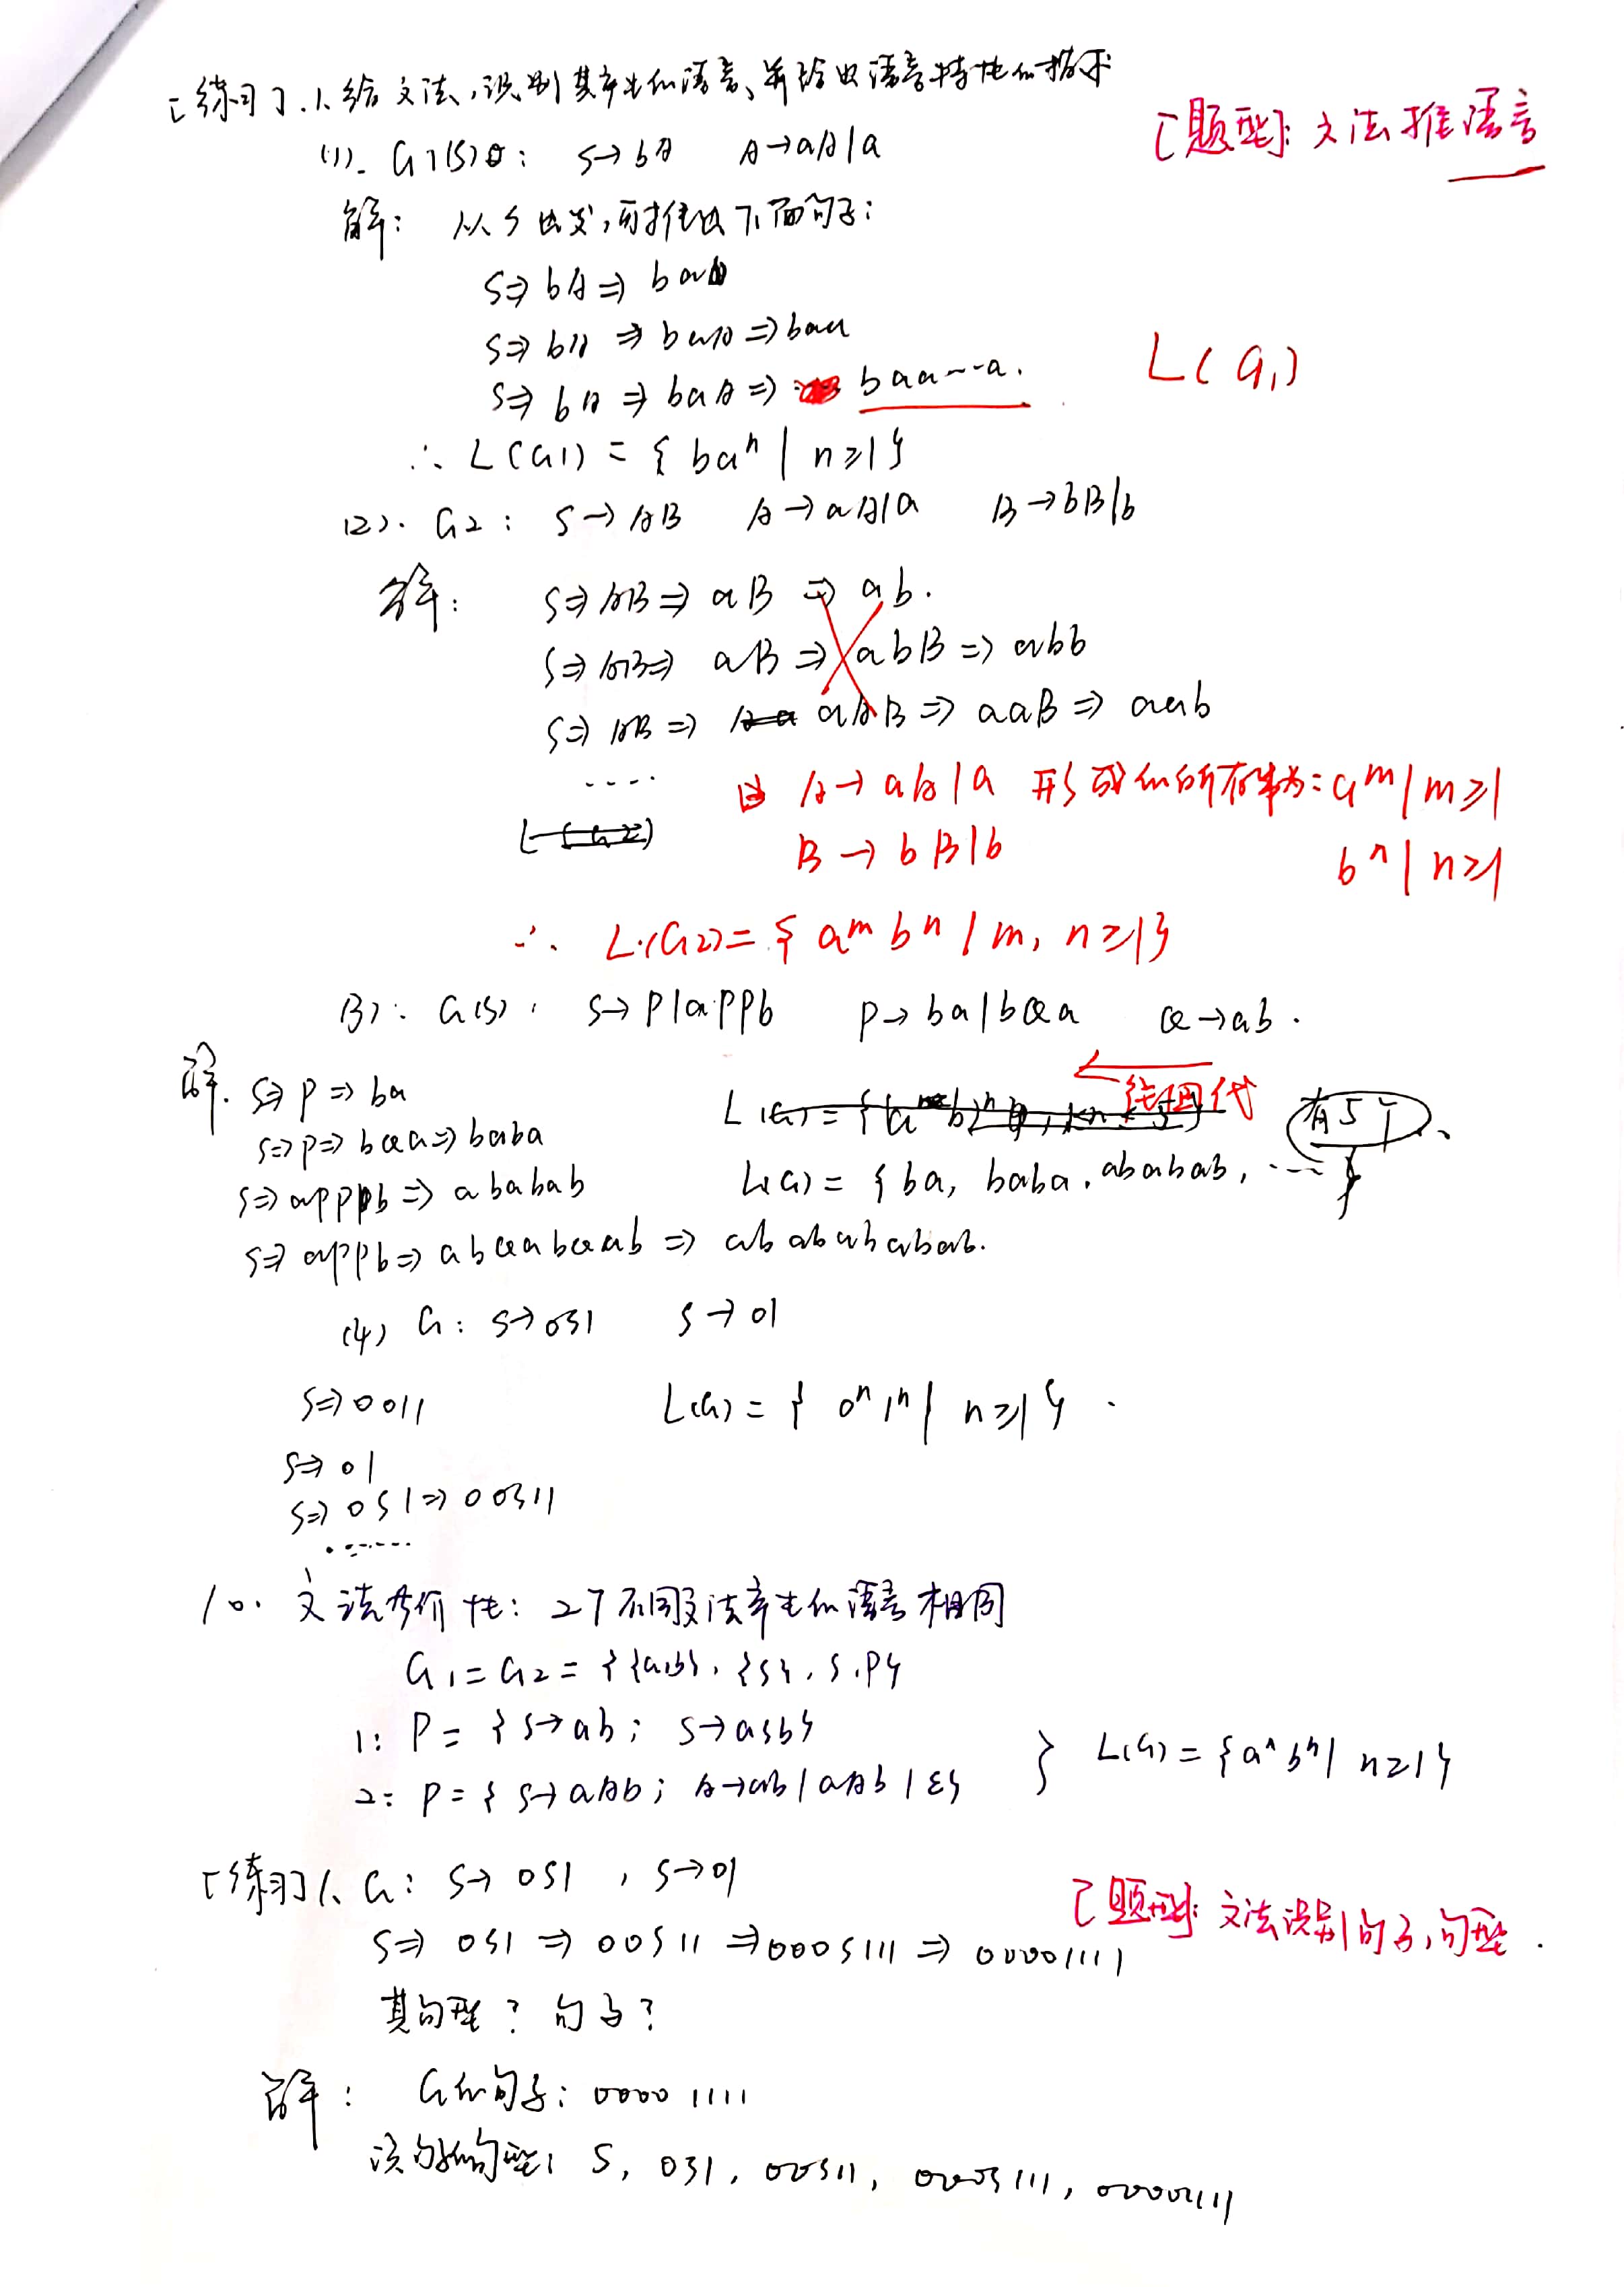 [练习].1.给文法,识别其产生的语言,并给出语言特性的描述
[题型]: 文法推语言
(1). G1(S): S→bA A→aA|a
解: 从S出发,可推出下面句子:
S⇒bA⇒ba
S⇒bA⇒baA⇒baa
S⇒bA⇒baA⇒ baa--a.
L(G1)
∴ L(G1) = { ba^n | n≥1 }
(2). G2: S→AB A→aA|a B→bB|b
解: S⇒AB⇒aB⇒ab.
S⇒AB⇒aB⇒abB⇒abb
S⇒AB⇒aAB⇒aaB⇒aab
....
由 A→aA|a 形成的所有串为: a^m | m≥1
B→bB|b b^n | n≥1
∴ L(G2)={ a^m b^n | m, n≥1 }
(3). G(S): S→P|aPPb P→ba|bQa Q→ab.
往回代
解. S⇒P⇒ba
S⇒P⇒bQa⇒baba
有5个、
L(G) = { ba, baba, ababab, ---- }
S⇒aPPb⇒ababab
S⇒aPPb⇒abQabQab⇒ababababab.
(4) G: S→0S1 S→01
S⇒0011
L(G) = { 0^n 1^n | n≥1 }.
S⇒01
S⇒0S1⇒00S11
......
10. 文法等价性: 2个不同文法产生的语言相同
G1=G2={{a,b},{S},S,P}
1: P={S→ab; S→aSb}
2: P={S→aAb; A→ab|aAb|ε}
} L(G)={a^n b^n | n≥1}
[练习]1、G: S→0S1 , S→01
[题型]: 文法识别句子,句型.
S⇒0S1⇒00S11⇒000S111⇒00001111
其句型? 句子?
解: G的句子: 00001111
该句子的句型: S, 0S1, 00S11, 000S111, 00001111